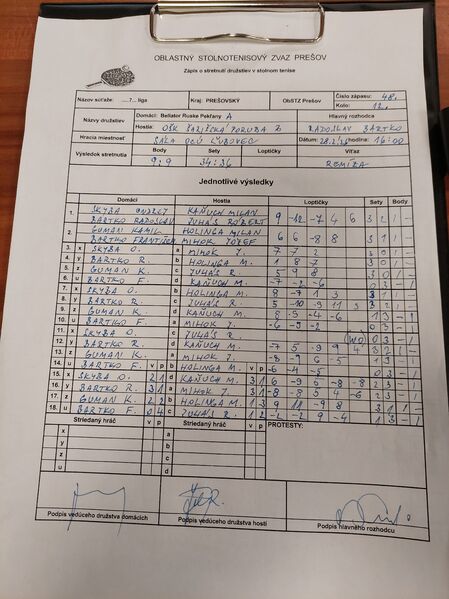 OBLASTNÝ STOLNOTENISOVÝ ZVÄZ PREŠOV
Zápis o stretnutí družstiev v stolnom tenise
Názov súťaže: ....7.. liga Kraj: PREŠOVSKÝ ObSTZ Prešov Číslo zápasu: 48.
Kolo: 12.
Názvy družstiev Domáci: Beliator Ruske Pekľany A Hlavný rozhodca
Hostia: OŠK ŠARIŠSKÁ PORUBA B RADOSLAV BARTKO
Hracia miestnosť SÁLA OCÚ ĽUBOVEC Dátum: hodina: 16:00
Výsledok stretnutia Body Sety Loptičky Víťaz
9:9 34:36 REMÍZA
Jednotlivé výsledky
Domáci Hostia Loptičky Sety Body
1. SKYBA ONDREJ KAŇUCH MILAN
BARTKO RADOSLAV JUHÁS RÓBERT 9 -12 -7 4 6 3 2 1 -
2. GUMAN KAMIL HOLINGA MILAN
BARTKO FRANTIŠEK MIHOK JOZEF 6 6 -8 8 3 1 1 -
3. x SKYBA O. a MIHOK J. 7 7 2 3 0 1 -
4. y BARTKO R. b HOLINGA M. 1 8 7 3 0 1 -
5. z GUMAN K. c JUHÁS R. 5 9 8 3 0 1 -
6. u BARTKO F. d KAŇUCH M. -7 -2 -6 0 3 - 1
7. x SKYBA O. b HOLINGA M. 8 -7 1 3 3 1 1 -
8. y BARTKO R. c JUHÁS R. 5 -10 -9 11 3 3 2 1 -
9. z GUMAN K. d KAŇUCH M. 8 -9 -4 -6 1 3 - 1
10. u BARTKO F. a MIHOK J. -6 -9 -2 0 3 - 1
11. x SKYBA O. c JUHÁS R. (WO) 0 3 - 1
12. y BARTKO R. d KAŇUCH M. -7 5 -9 9 4 3 2 1 -
13. z GUMAN K. a MIHOK J. -8 -9 6 -5 1 3 - 1
14. u BARTKO F. v p b HOLINGA M. v p -6 -4 -5 0 3 - 1
15. x SKYBA O. 2 1 d KAŇUCH M. 3 1 6 -9 5 -8 -8 2 3 - 1
16. y BARTKO R. 3 1 a MIHOK J. 3 1 -8 -8 5 4 -6 2 3 - 1
17. z GUMAN K. 2 2 b HOLINGA M. 1 3 9 11 -9 8 3 1 1 -
18. u BARTKO F. 0 4 c JUHÁS R. 1 2 -2 -2 9 -4 1 3 - 1
Striedaný hráč v p Striedaný hráč v p PROTESTY:
x a
y b
z c
u d
Podpis vedúceho družstva domácich Podpis vedúceho družstva hostí Podpis hlavného rozhodcu